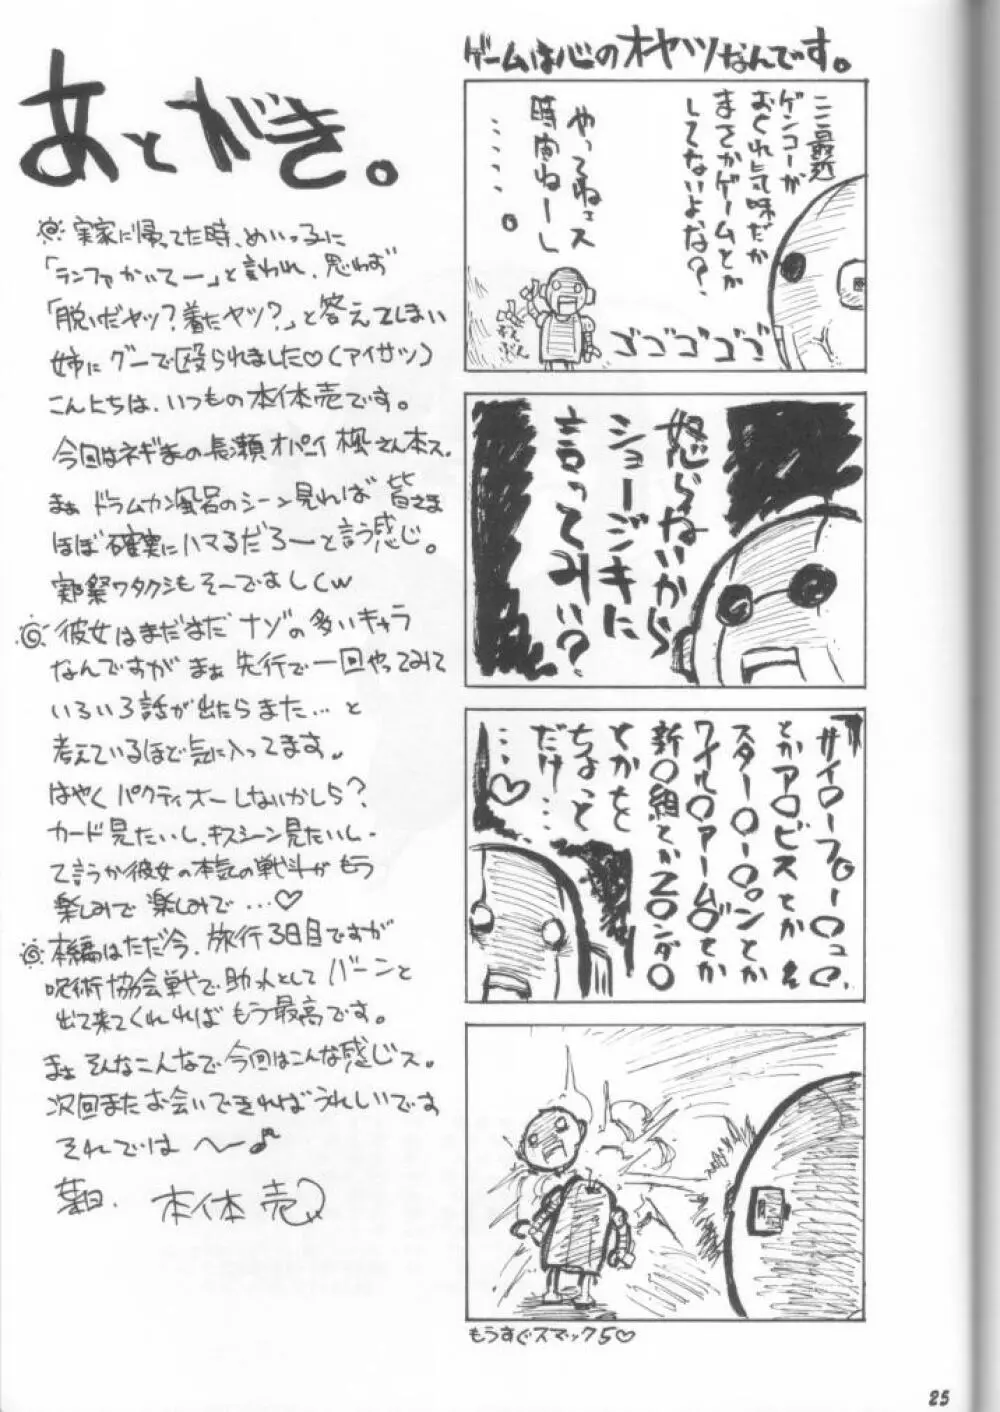 あとがき。
実家に帰ってた時、めいっ子に
「ランファかいてー」と言われ、思わず
「脱いだヤツ?着たヤツ?」と答えてしまい
姉にグーで殴られました♡(アイサツ)
こんにちは、いつもの本体売です。
今回はネギまの長瀬オパーイ楓さん本ス。
まぁドラムカン風呂のシーン見れば皆さま
ほぼ確実にハマるだろーと言う感じ。
実際ワタクシもそーでましくw
彼女はまだまだナゾの多いキャラ
なんですがまぁ先行で一回やってみて
いろいろ話が出たらまた…と
考えているほど気に入ってます。
はやくパクティオーしないかしら?
カード見たいし、キスシーン見たいし・
て言うか彼女の本気の戦斗がもう
楽しみで楽しみで…♡
本編はただ今、旅行3日目ですが
呪術協会戦で助け人としてバーンと
出て来てくれればもう最高です。
まぁそんなこんなで今回はこんな感じス。
次回またお会いできればうれしいです
それでは〜♪
本体売
ゲームは心のオヤツなんです。
ここ最近
ゲンコーが
おくれ気味だか
まさかゲームとか
してないよな?
やってねェス
時間ねーし
・・・・。
ゴゴゴゴゴ
怒らないから
ショージキに
言ってみい?
サイ〇ーフ〇ー〇ュ〇、
とかア〇ビスとか
スター〇ー〇ンとか
ワイル〇アーム〇とか
新〇組とかZ〇ンダ〇
とかを
ちょっと
だけ…
…♡
脳
もうすぐスマック5♡
25